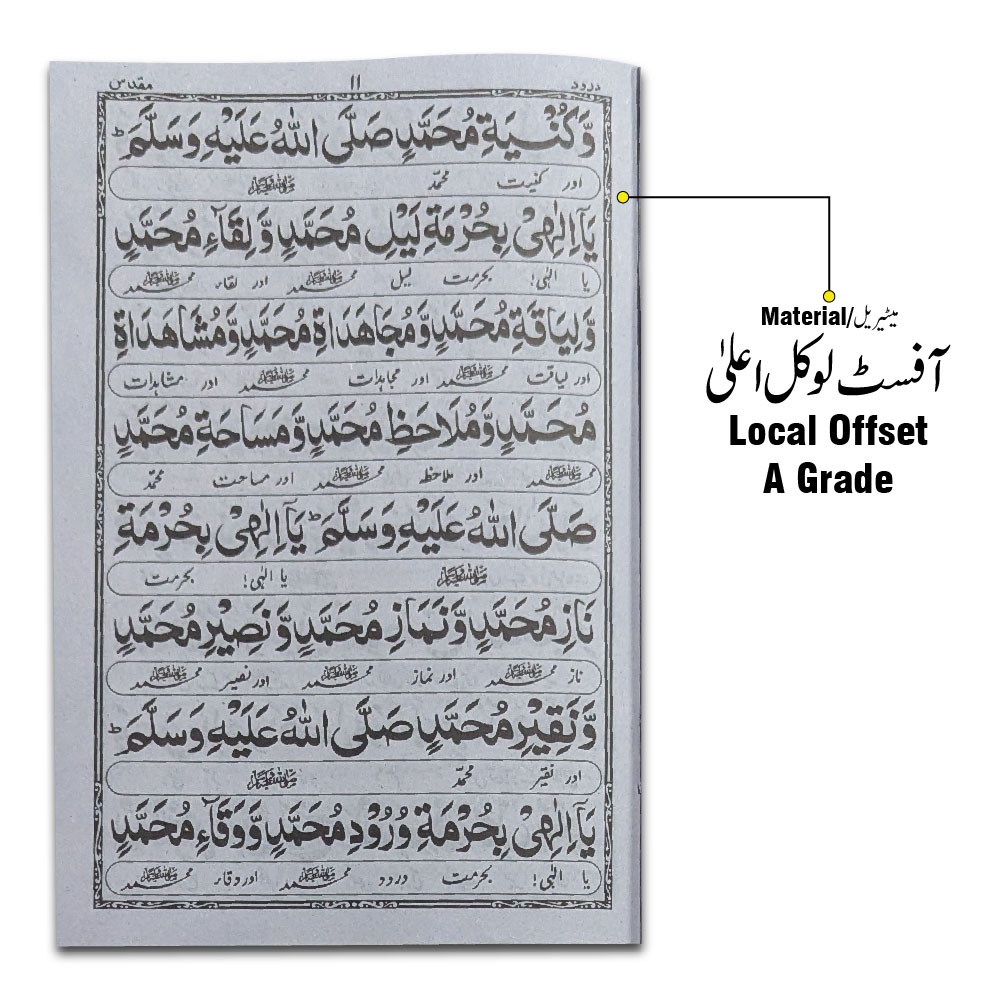 درود ۱۱ مقدس
وَّكُنْيَةِ مُحَمَّدٍ صَلَّى اللهُ عَلَيْهِ وَسَلَّمَ ؕ
اور کنیت محمدؐ ﷺ
يَآ اِلٰهِيْ بِحُرْمَةِ لَيْلِ مُحَمَّدٍ وَّلِقَآءِ مُحَمَّدٍ
یا الٰہی! بحرمت لیل محمد ﷺ اور لقاء محمد ﷺ
وَّلِيَاقَةِ مُحَمَّدٍ وَّمُجَاهَدَاةِ مُحَمَّدٍ وَّمُشَاهَدَاةِ
اور لیاقت محمد ﷺ اور مجاہدات محمد ﷺ اور مشاہدات
مُحَمَّدٍ وَّمُلَاحَظِ مُحَمَّدٍ وَّمَسَاحَةِ مُحَمَّدٍ
محمد ﷺ اور ملاحظہ محمد ﷺ اور مساحت محمدؐ
صَلَّى اللهُ عَلَيْهِ وَسَلَّمَ ؕ يَآ اِلٰهِيْ بِحُرْمَةِ
ﷺ یا الٰہی! بحرمت
نَازِ مُحَمَّدٍ وَّنَمَازِ مُحَمَّدٍ وَّنَصِيْرِ مُحَمَّدٍ
ناز محمد ﷺ اور نماز محمد ﷺ اور نصیر محمد ﷺ
وَّنَقِيْرِ مُحَمَّدٍ صَلَّى اللهُ عَلَيْهِ وَسَلَّمَ ؕ
اور نقیر محمدؐ ﷺ
يَآ اِلٰهِيْ بِحُرْمَةِ وُرُوْدِ مُحَمَّدٍ وَّوَقَآءِ مُحَمَّدٍ
یا الٰہی! بحرمت درود محمد ﷺ اور وقار محمد ﷺ
Material/میٹیریل
آفسٹ لوکل اعلیٰ
Local Offset
A Grade